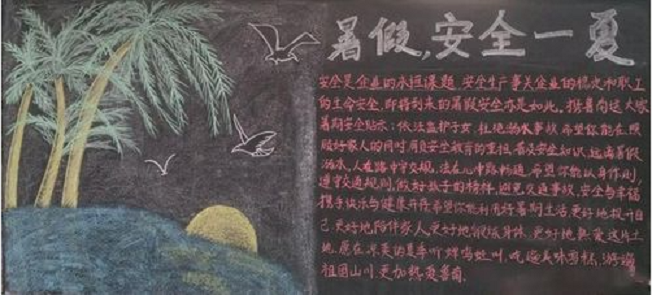 暑假,安全一夏
安全是企业的永恒课题,安全生产事关企业的稳定和职工
的生命安全,即将到来的暑假安全亦是如此。普南送大家
暑期安全贴示:依法监护子女,杜绝溺水事故,希望你能在照
顾好家人的同时,肩负安全教育的重担,普及安全知识,远离暑假
溺水,人在路中守交规,法在心中路畅通,希望你能以身作则,
遵守交通规则,做好孩子的榜样,避免交通事故,安全与幸福
携手快乐与健康并存,希望你能利用好暑期生活,更好地提升自
己,更好地陪伴家人,更好地锻炼身体,更好地热爱这片土
地,愿在凉爽的夏季听蝉鸣处叫,吃遍美味
祖国山川,更加热爱普南.